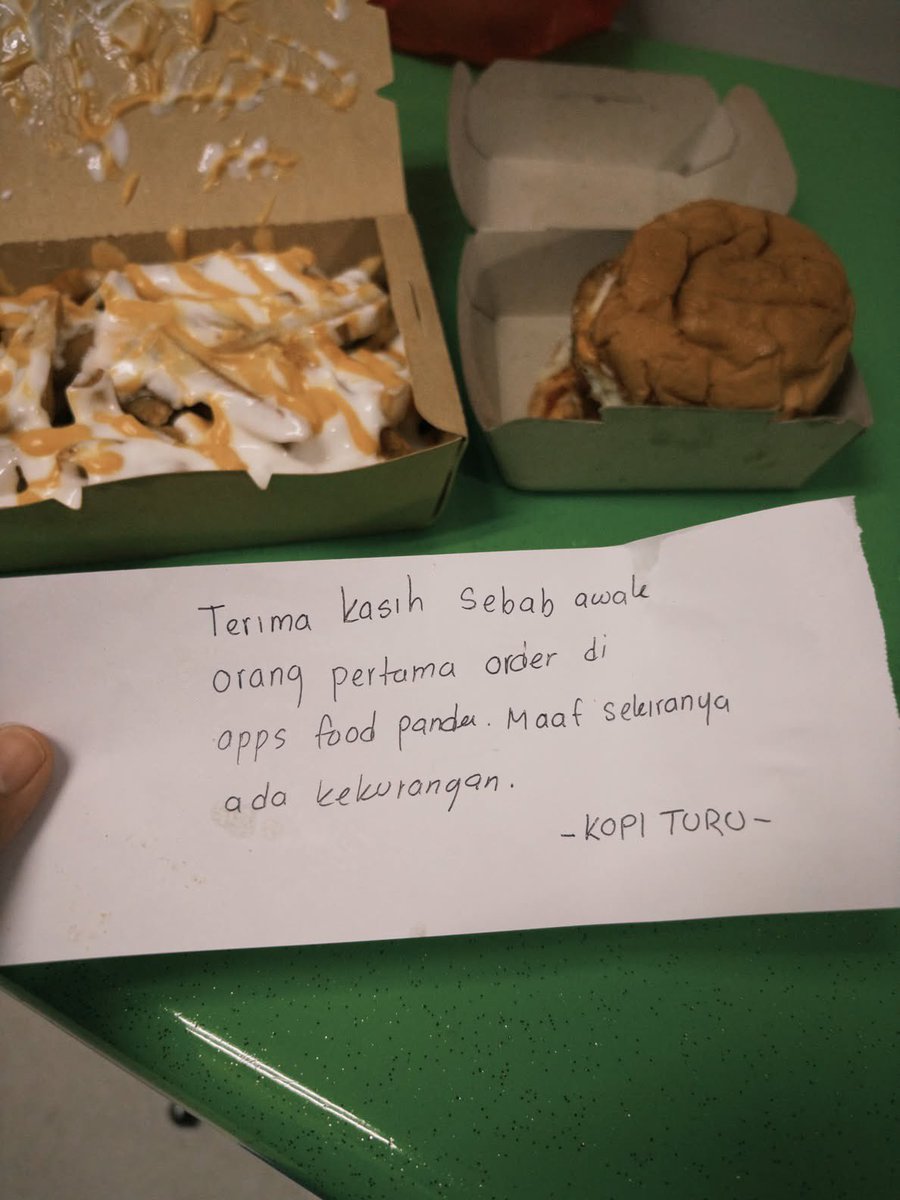 Terima kasih sebab awak
orang pertama order di
apps food panda. Maaf sekiranya
ada kekurangan.
-KOPI TURU-